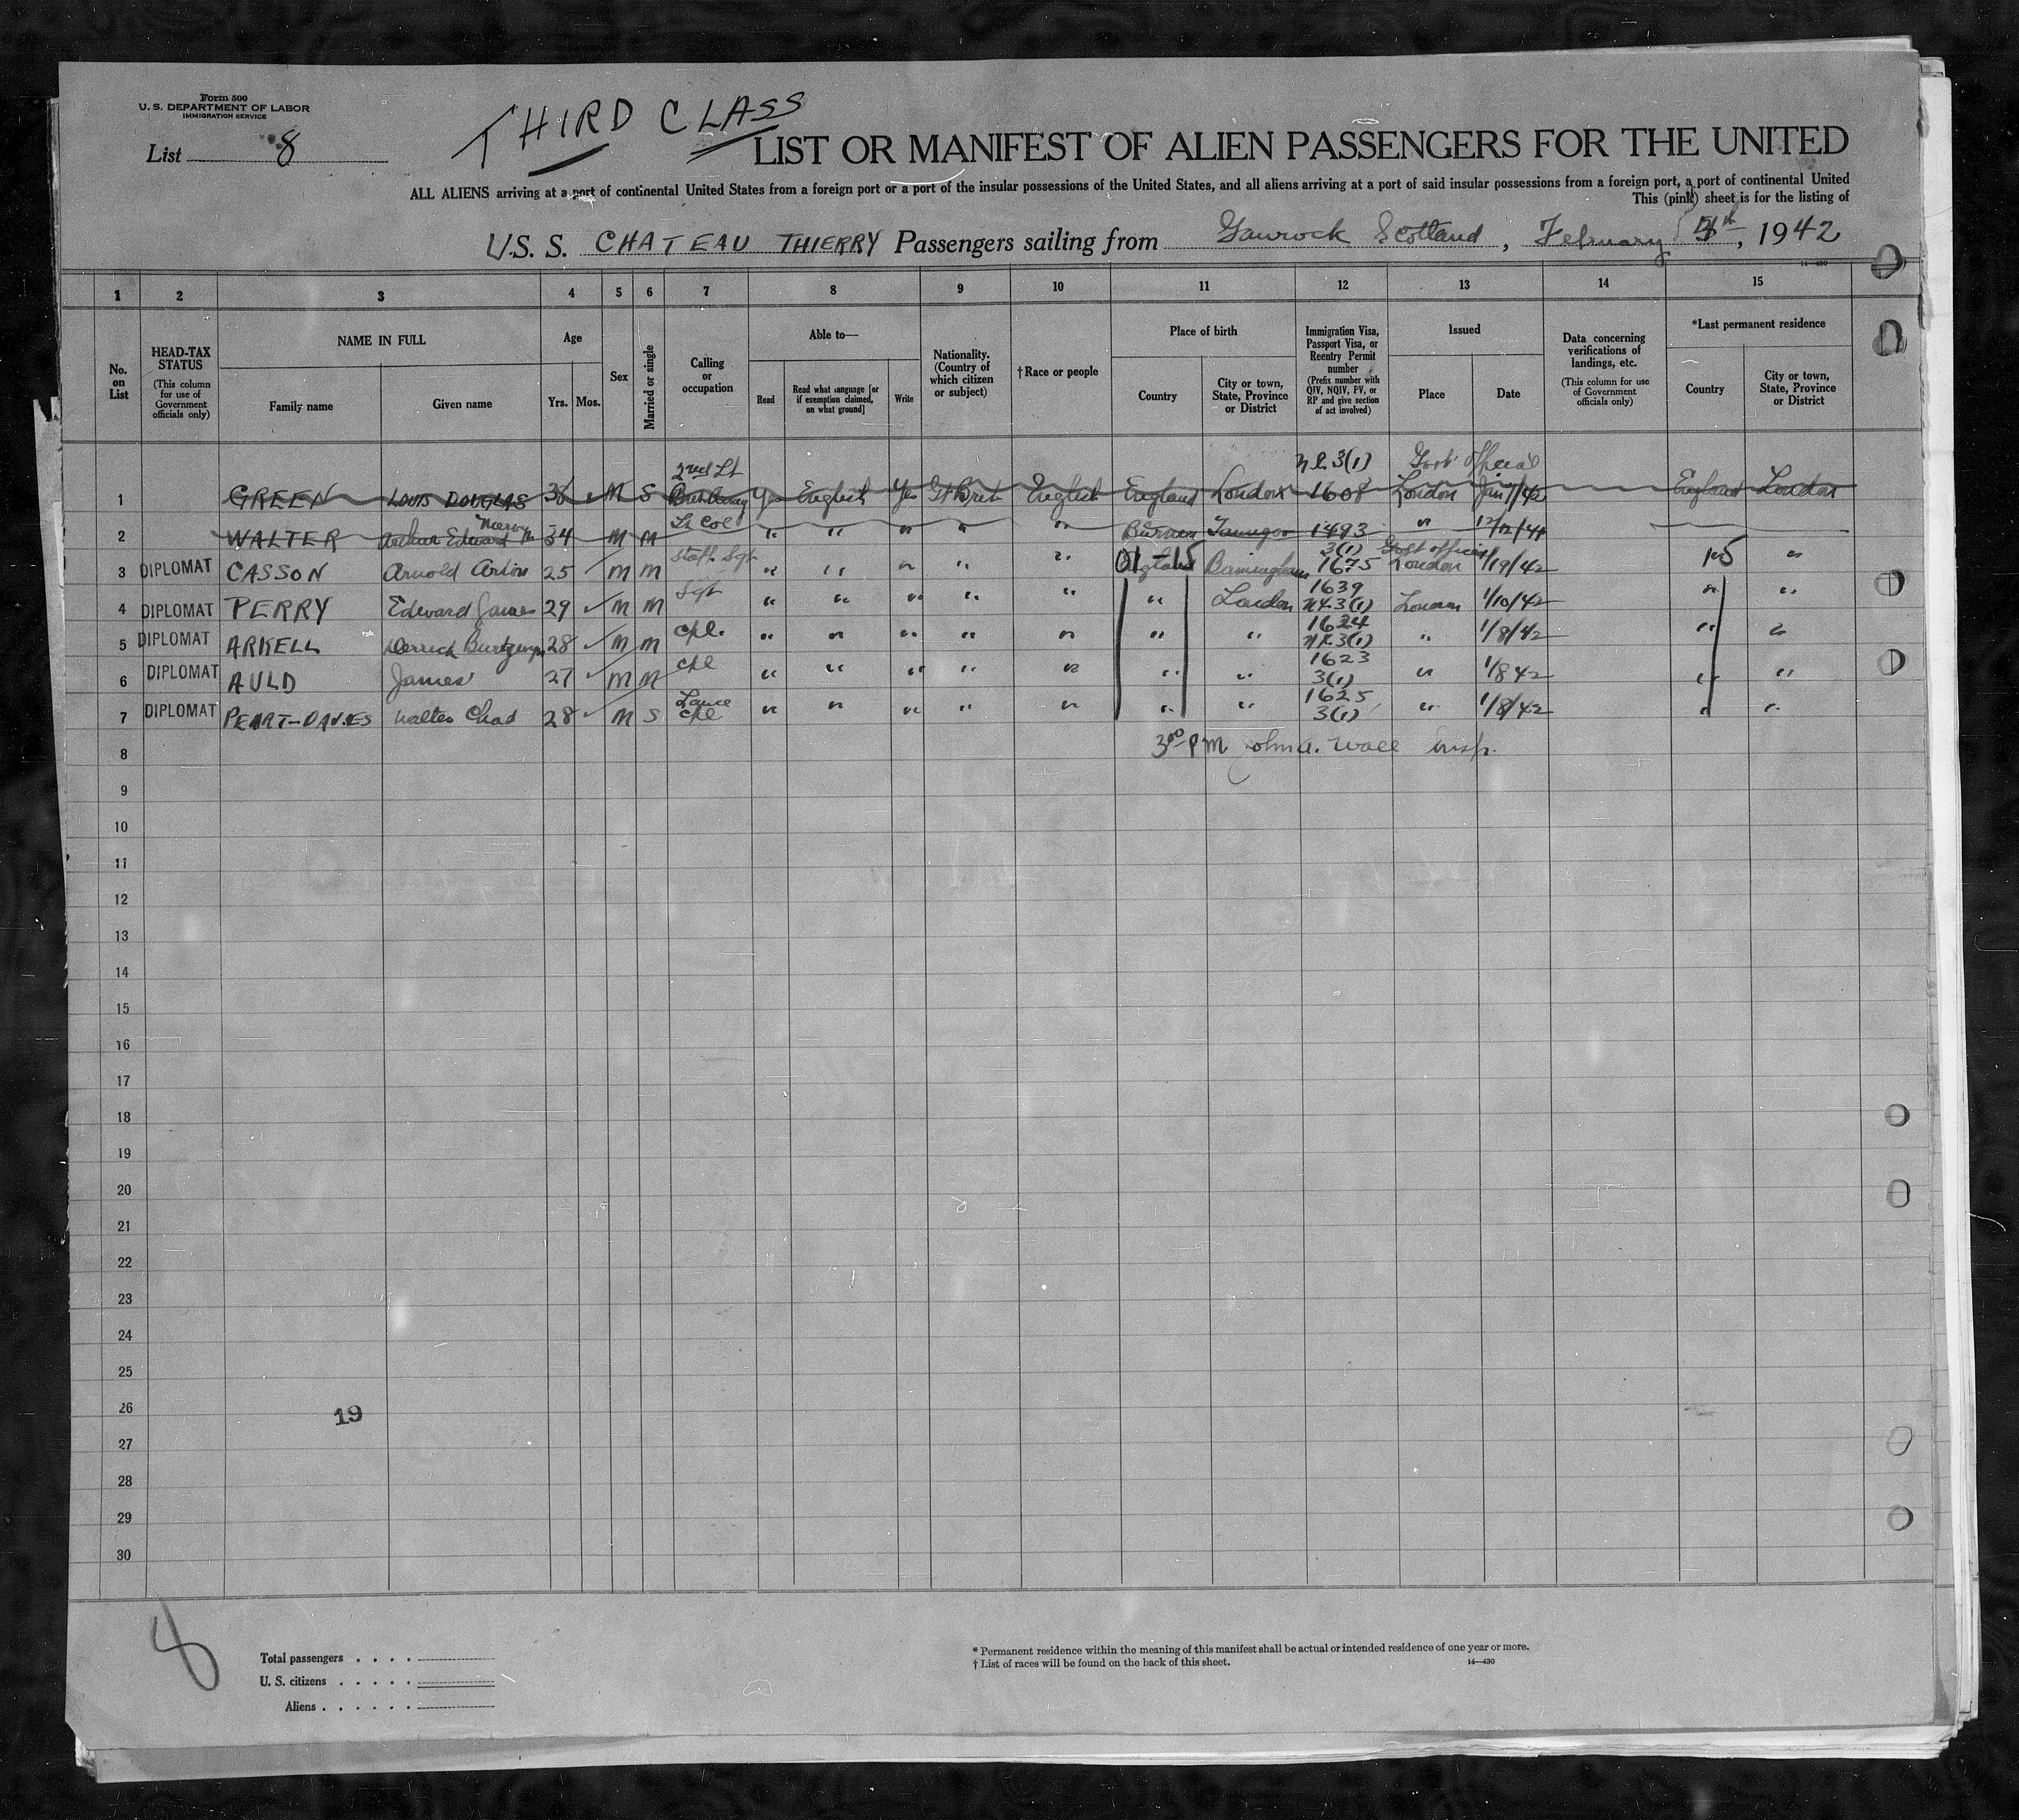 Form 500
U. S. DEPARTMENT OF LABOR
IMMIGRATION SERVICE
List 8
THIRD CLASS
LIST OR MANIFEST OF ALIEN PASSENGERS FOR THE UNITED
ALL ALIENS arriving at a port of continental United States from a foreign port or a port of the insular possessions of the United States, and all aliens arriving at a port of said insular possessions from a foreign port, a port of continental United
This (pink) sheet is for the listing of
U.S. S. CHATEAU THIERRY Passengers sailing from Gourock Scotland, February 5th, 1942
14-430
1 2 3 4 5 6 7 8 9 10 11 12 13 14 15
No. on List
HEAD-TAX STATUS
(This column for use of Government officials only)
NAME IN FULL
Family name
Given name
Age
Yrs.
Mos.
Sex
Married or single
Calling or occupation
Able to—
Read
Read what language [or if exemption claimed, on what ground]
Write
Nationality. (Country of which citizen or subject)
†Race or people
Place of birth
Country
City or town, State, Province or District
Immigration Visa, Passport Visa, or Reentry Permit number
(Prefix number with QIV, NQIV, PV, or RP and give section of act involved)
Issued
Place
Date
Data concerning verifications of landings, etc.
(This column for use of Government officials only)
*Last permanent residence
Country
City or town, State, Province or District
2nd Lt 3(1) Govt official
1 GREEN LOUIS DOUGLAS 36 M S Yes English Yes Gt Brit English England London 1608 London Jan 7/42 England London
2 WALTER Arthur Edward 34 M M Lt Col " " " " " 1493 " 12/12/41
3(1) Govt official
3 DIPLOMAT CASSON Arnold 25 M M Staff Sgt " " " " " 01-15 England Birmingham 1675 London 1/19/42 15 "
4 DIPLOMAT PERRY Edward James 29 M M Sgt " " " " " " London 1639 3(1) London 1/10/42 " "
5 DIPLOMAT ARKELL Derrick 28 M M Cpl. " " " " " " " 1624 3(1) " 1/8/42 " "
6 DIPLOMAT AULD James 27 M M Cpl " " " " " " " 1623 3(1) " 1/8 42 " "
7 DIPLOMAT PEART-DAVIES Walter Chad 28 M S Lance Cpl " " " " " " " 1625 3(1) " 1/8/42 " "
8 3 00 PM John A. Wall Insp.
9
10
11
12
13
14
15
16
17
18
19
20
21
22
23
24
25
26
19
27
28
29
30
8
Total passengers . . . .
U. S. citizens . . . . .
Aliens . . . . . .
* Permanent residence within the meaning of this manifest shall be actual or intended residence of one year or more.
† List of races will be found on the back of this sheet.
14—430